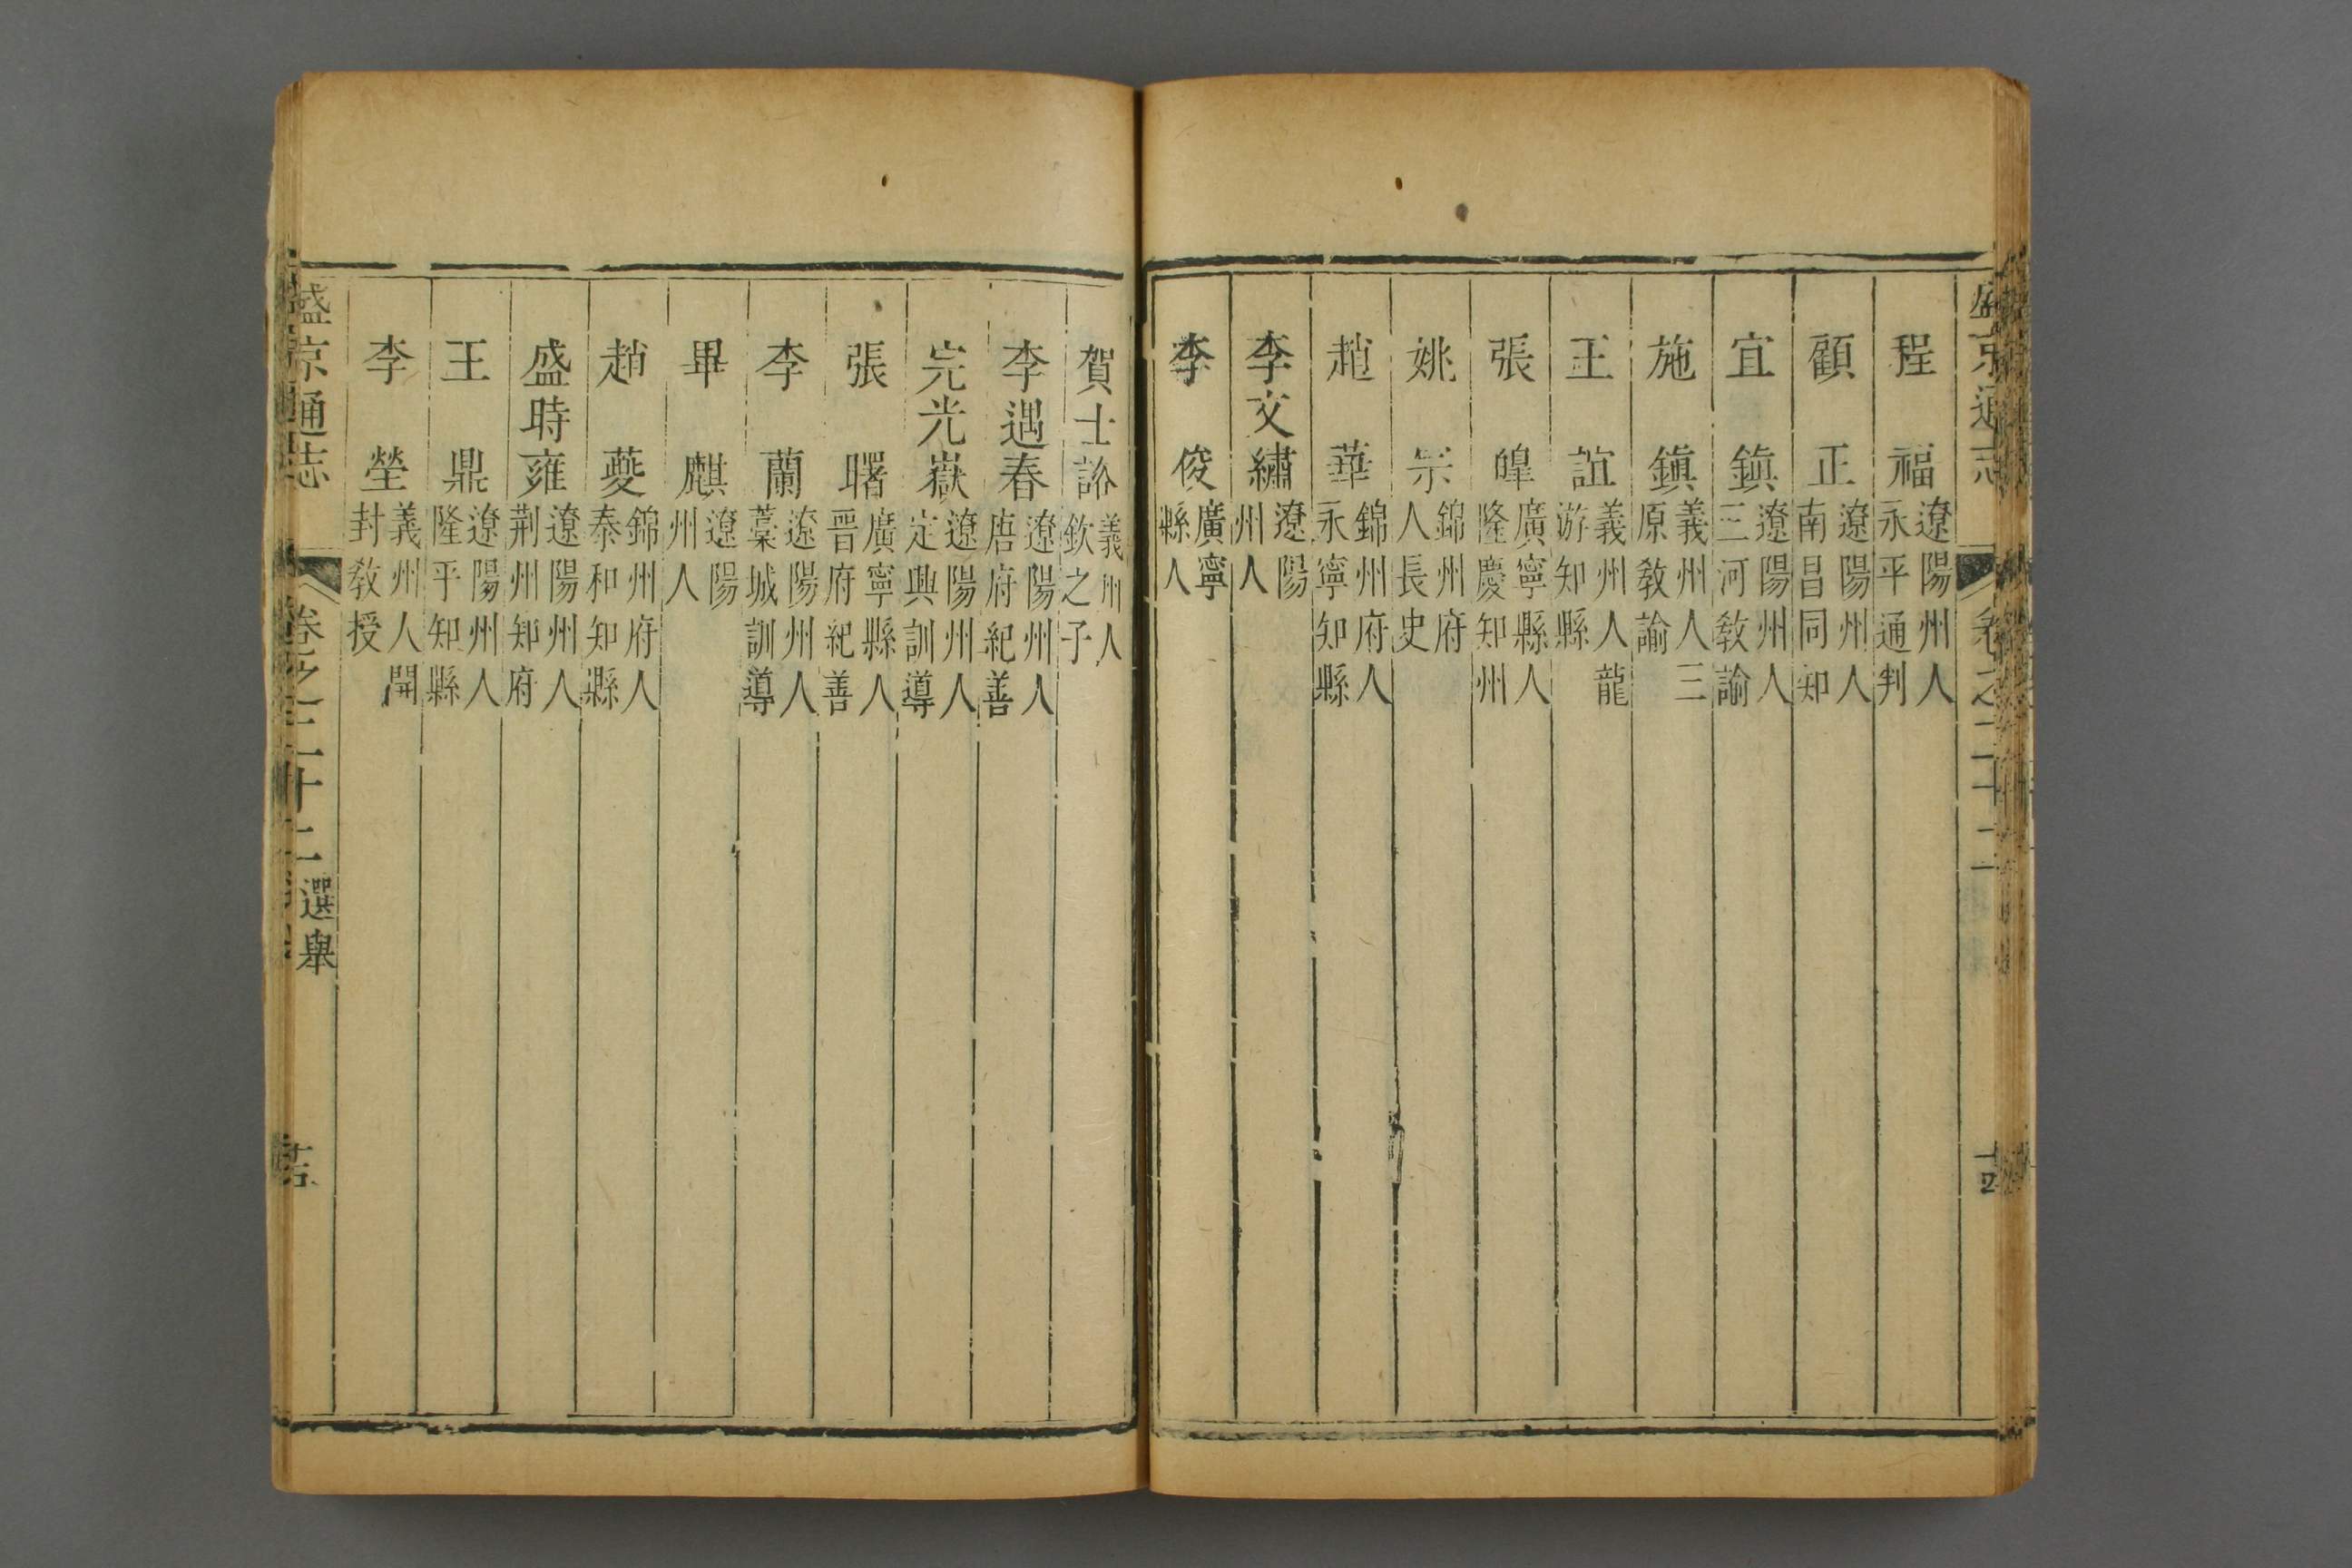 盛京通志 卷之二十二 十四
程 福 遼陽州人永平通判
顧 正 遼陽州人南昌同知
宜 鎮 遼陽州人三河敎諭
施 鎮 義州人三原敎諭
王 誼 義州人龍游知縣
張 皥 廣寧縣人隆慶知州
姚 宗 錦州府人長史
趙 華 錦州府人永寧知縣
李文繡 遼陽州人
李 俊 廣寧縣人
賀士諮 義州人欽之子
李遇春 遼陽州人唐府紀善
完光嶽 遼陽州人定興訓導
張 曙 廣寧縣人晋府紀善
李 蘭 遼陽州人藁城訓導
畢 麒 遼陽州人
趙 夔 錦州府人泰和知縣
盛時雍 遼陽州人荆州知府
王 鼎 遼陽州人隆平知縣
李 瑩 義州人開封敎授
盛京通志 卷之二十二 選舉